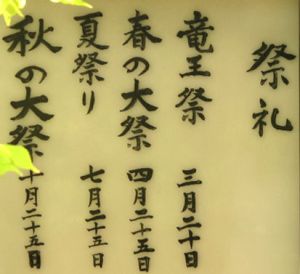 祭礼
竜王祭 三月二十日
春の大祭 四月二十五日
夏祭り 七月二十五日
秋の大祭 十月二十五日